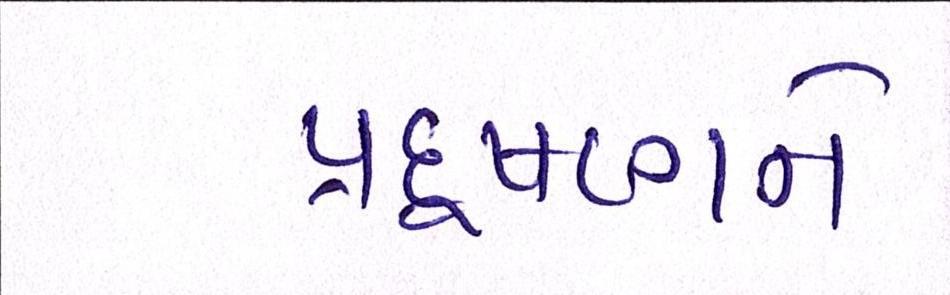 પ્રદૂષણને